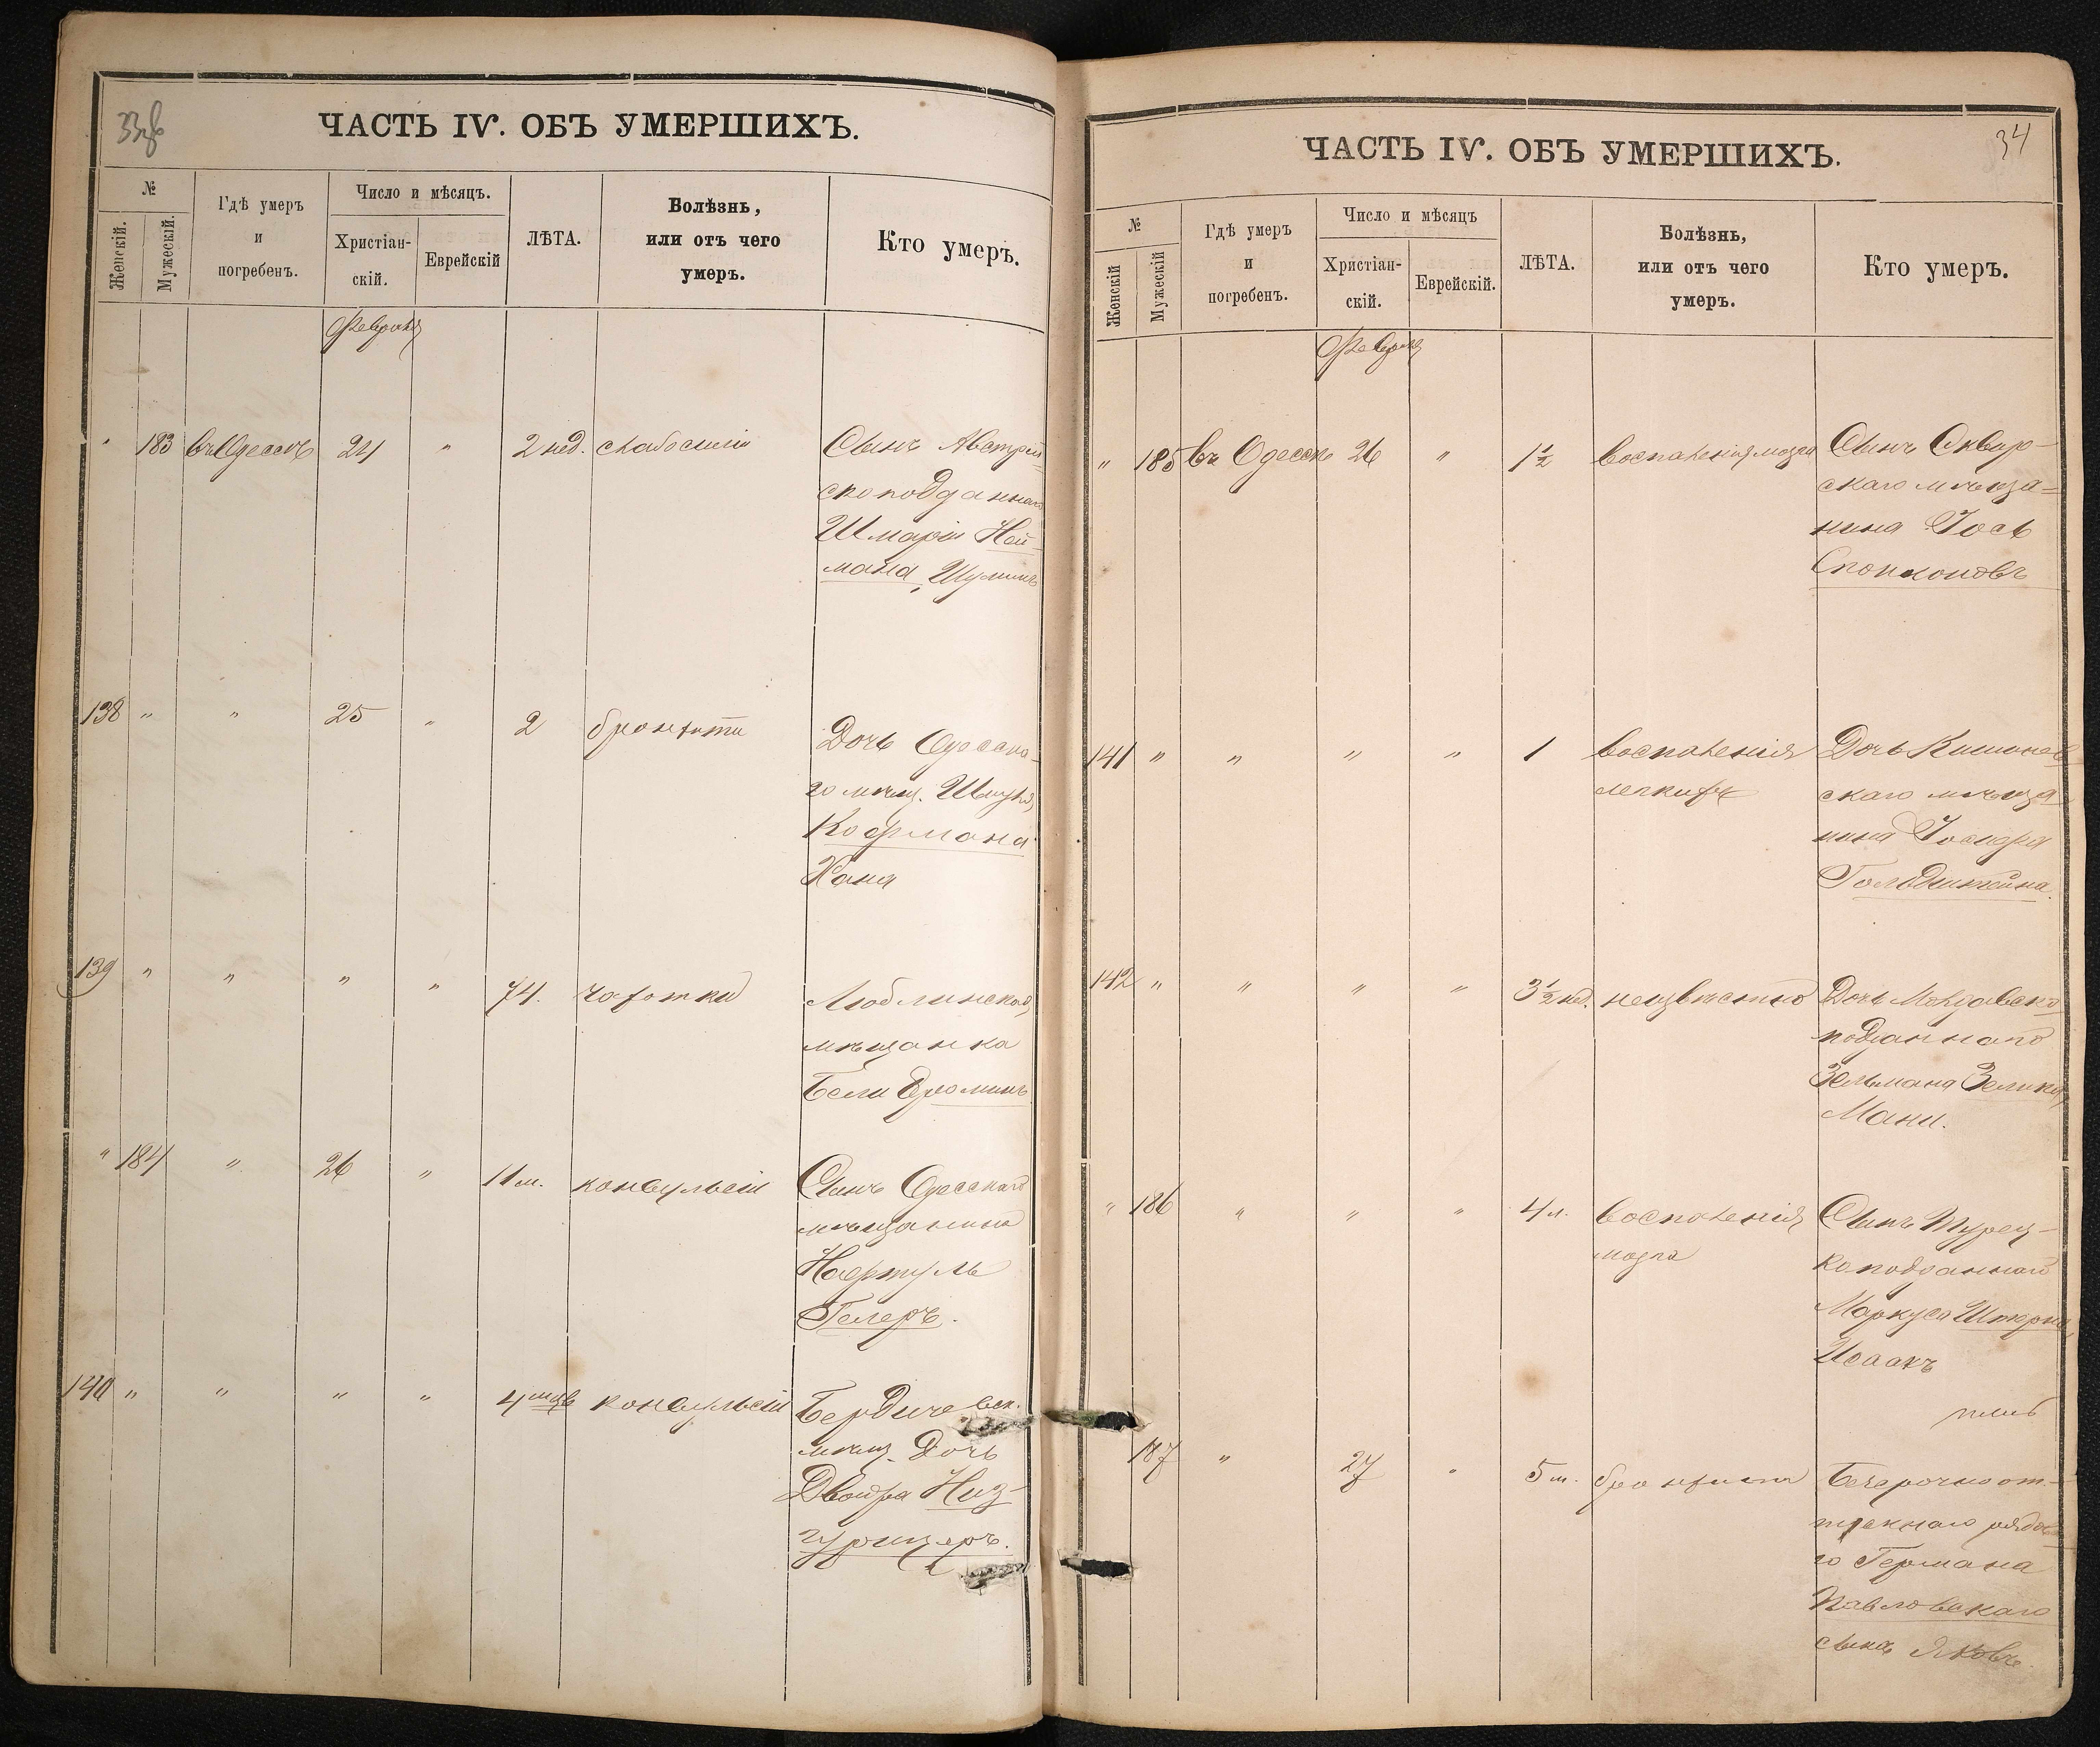 ЧАСТЬ IV. ОБЪ УМЕРШИХЪ.
№
Женскій.
Мужескій.
Гдѣ умеръ
и
погребенъ.
Число и мѣсяцъ.
Христіан-
скій.
Еврейскій
ЛѢТА.
Болѣзнь,
или отъ чего
умеръ.
Кто умеръ.
Февраля
" 183 въ Одессѣ 24 " 2 нед. слабосилія Сынъ Австрій-
скоподданнаго
Шмарія Ней-
мана,
138 " " 25 " 2 бронхита Дочь Одесска-
го мѣщ. Шмуля
Кофмана
Хана
139 " " " " 74. чахотки Люблинская
мѣщанка
Бели
" 184 " 26 " 11 м. конвульсіи Сынъ Одесскаго
мѣщанина
Нафтуль
Гелеръ.
140 " " " " 4 мѣс конвульсіи Бердичевск.
мѣщ. Дочь
Двойра Низ-
гурицеръ.
34
ЧАСТЬ IV. ОБЪ УМЕРШИХЪ.
№
Женскій
Мужескій
Гдѣ умеръ
и
погребенъ.
Число и мѣсяцъ
Христіан-
скій.
Еврейскій.
ЛѢТА.
Болѣзнь,
или отъ чего
умеръ.
Кто умеръ.
Февраля
" 185 въ Одессѣ 26 " 1½ воспаленія мозга Сынъ Сквир-
скаго мѣща-
нина Іось
141 " " " " 1 воспаленія Дочь Кишинев-
легкихъ скаго мѣща-
нина
Гольдштейна.
142 " " " " 3½ нед. неизвѣстно Дочь Молдавско
подданнаго
Зельмана Зелика
Мани.
" 186 " " " 4 м. воспаленія Сынъ Турец-
мозга коподданнаго
Маркуса Штерна
Исаакъ
187 " 27 " 5 м. бронхита Безсрочноот-
пускнаго рядово
го Германа
Павловскаго
сынъ Яковъ.